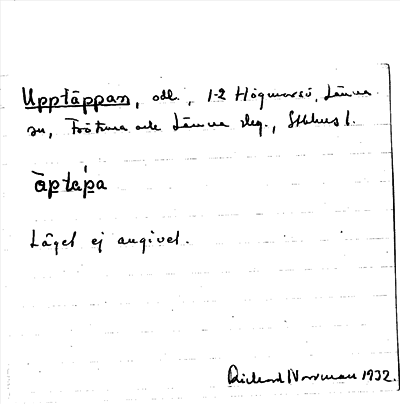 Upptäppan, odl., 1-2 Högmarsö, Länna
sn, Frötuna och Länna slg., Sthlms l.
ap̀táp̣a
Läget ej angivet.
Rickard Norrman 1932.